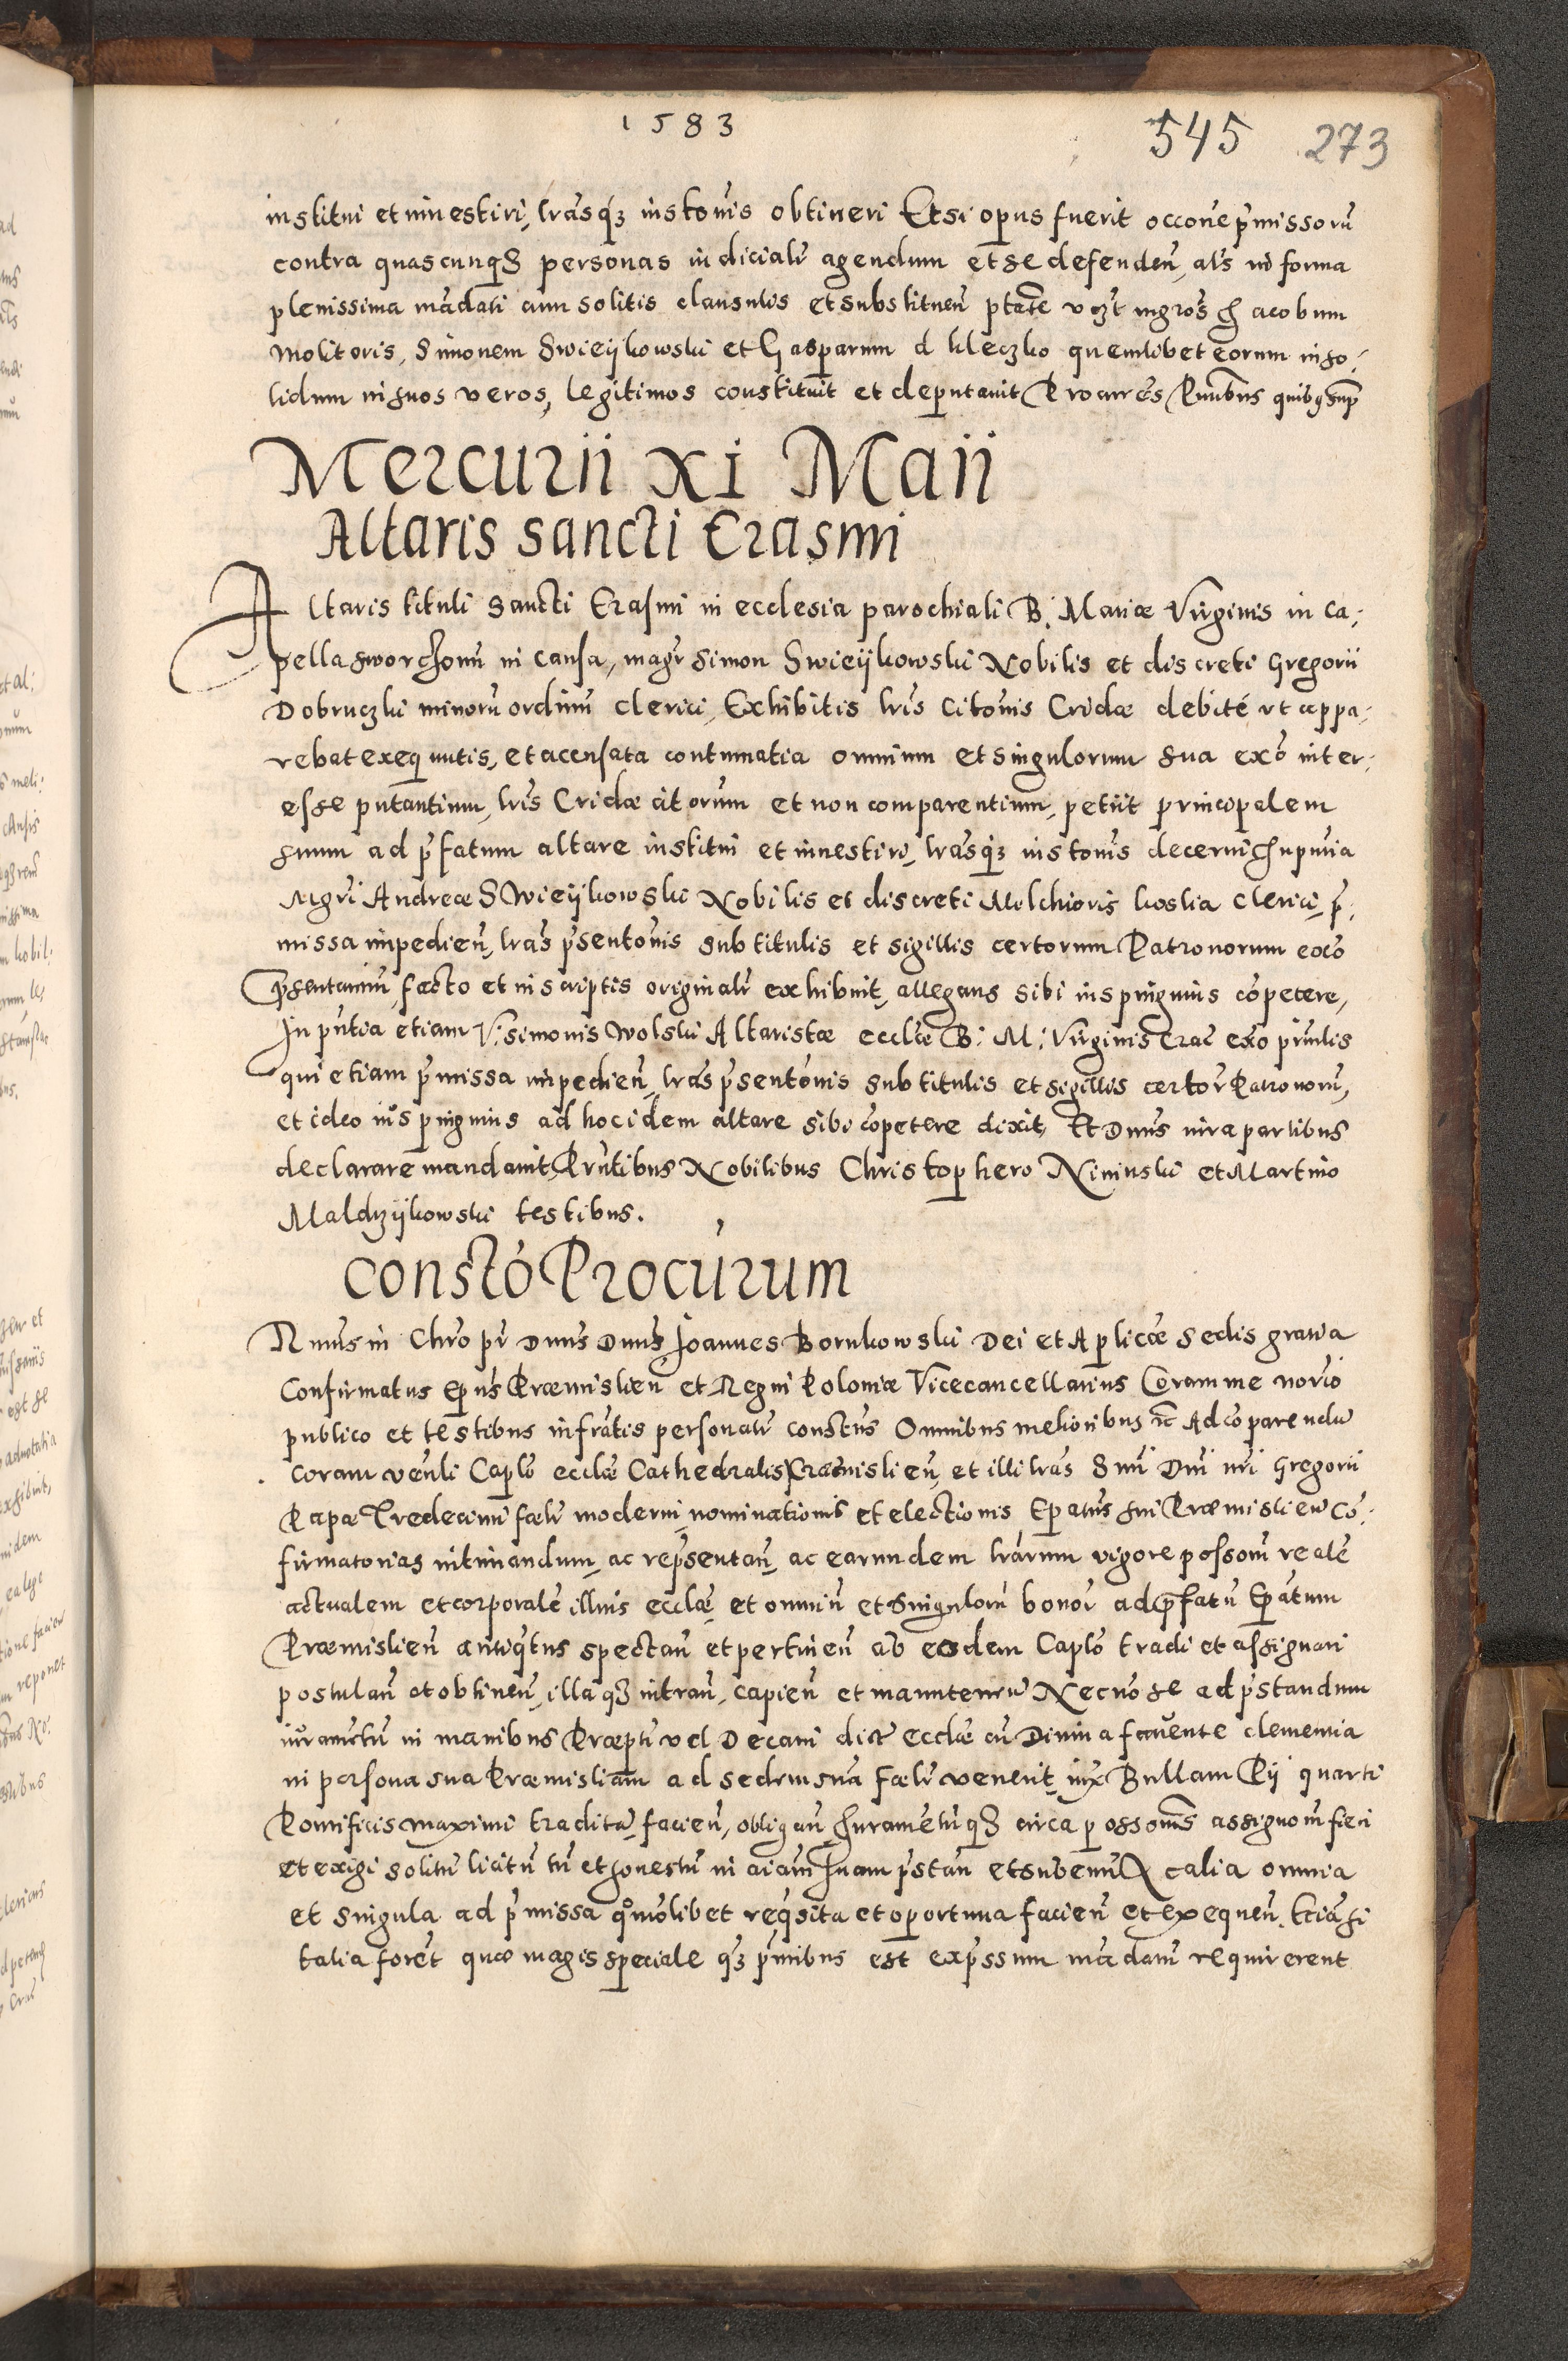 1583
545 273
institui et investiri, lrasq3 instonis obtineri Et si opus fuerit occone pmissoru
contra quascunq3 personas iudicialr agendum et se defenden, als in forma
plenissima madati cum solitis clausulis et substituen ptate vezt mgros Jacobum
Molitoris, Simonem Swieijkowski et Gasparum d kleczko quemlibet eorum inso:
lidum in suos veros, legitimos constituit et deputavit Procures Pntibus quibq sup
Mercurii XI Maii
Altaris Sancti Erasmi
Altaris tituli Sancti Erasmi in ecclesia parochiali B. Mariæ Virginis in Ca:
pella sworchonu in causa, magr Simon Swieijkowski Nobilis et discreti Gregorii
Dobruczki minoru ordinu clerici, Exhibitis lris Citonis Cridæ debité ut appa:
rebat exequutis, et accusata contumatia omnium et singulorum sua exo inter:
esse putantium, lris Cridæ citorum et non comparentium, petiit principalem
suum ad pfatum altare institui et investiri, lrasq3 instonis decerni In pntia
Mgri Andreæ Swieijkowski Nobilis et discreti Melchioris koska clerici, p:
missa impedien, lras psentonis sub titulis et sigillis certorum Patronorum exo
psentanium, facto et in scriptis originalr exhibuit, allegans sibi ius pinguius copetere,
In pntia etiam V: Simonis Wolski Altaristæ ecclæ B: M: Virginis Crac exo pinlis
qui etiam pmissa impedien, lras psentonis sub titulis et sigillis certor Patronoru,
et ideo ius pinguius ad hoc idem altare sibi copetere dixit, Et Dnus iura partibus
declarare mandavit, Pntibus Nobilibus Christophero Niniuski et Martino
Maldrzijkowski testibus.
Consto Procurum
Rmus in Chro pr Dnus Dnus Joannes Bornkowski Dei et Aplicæ Sedis gratia
Confirmatus Epus Præmislien et Regni Poloniæ Vicecancellarius Coram me norio
publico et testibus infratis personalr constus Omnibus melioribus rc Ad coparendu
coram venli Caplo ecclæ Cathedralis Præmislien, et illi lras Smi Dni nri Gregorii
Papæ Tredecimi fœlr moderni, nominationis et electionis Epatus sui Præmislien Co:
firmatorias intimandum, ac repsentan, ac earundem lrarum vigore possom reale
actualem et corporale illius ecclæ, et omniu et Singuloru bonor ad pfatu Epatum
Præmislien antiqtus spectan et pertinen ab eodem Caplo tradi et assignari
postulan et obtinen, illa q3 intran, capien et manuteneu Necno se ad pstandum
iuramtu in manibus Præpti vel Decani dict ecclæ cu Divina favente clementia
in persona sua Præmisliam ad sedem sua fœlr venerit, iux Bullam Pij quarti
Pontificis maximi tradita, facien, obligan Juramentu q3 circa possonis assignom fieri
et exigi solitu licitu tn et honestu in aiam suam pstan et subeun, calia omnia
et singula ad pmissa quomolibet reqsita et oportuna facien et exequen. Etia si
talia foret quæ magis speciale q3 pntibus est expssum madatu requirerent